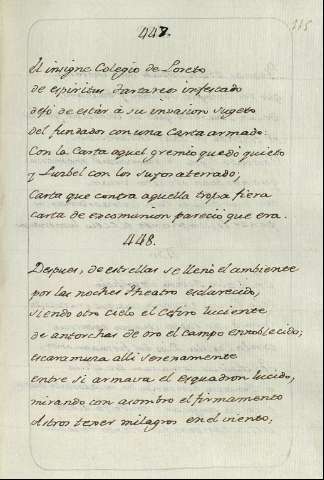 447.
115
El insigne Colegio de Loreto
de espiritus Tartareos infestado
dejó de estár á su invasion sugeto
del fundador con una Carta armado.
Con la Carta aquel gremio quedó quieto
y Luzbel con los suyos aterrado;
Carta que contra aquella tropa fiera
carta de excomunion pareció que era.
448.
Despues, de estrellas se llenó el ambiente
por las noches Theatro esclarecido,
siendo otro cielo el Cefiro luciente
de antorchas de oro el campo ennoblecido;
escaramuza alli serenamente
entre si armava el esquadron lucido,
mirando con asombro el firmamento
Astros tener milagros en el viento,